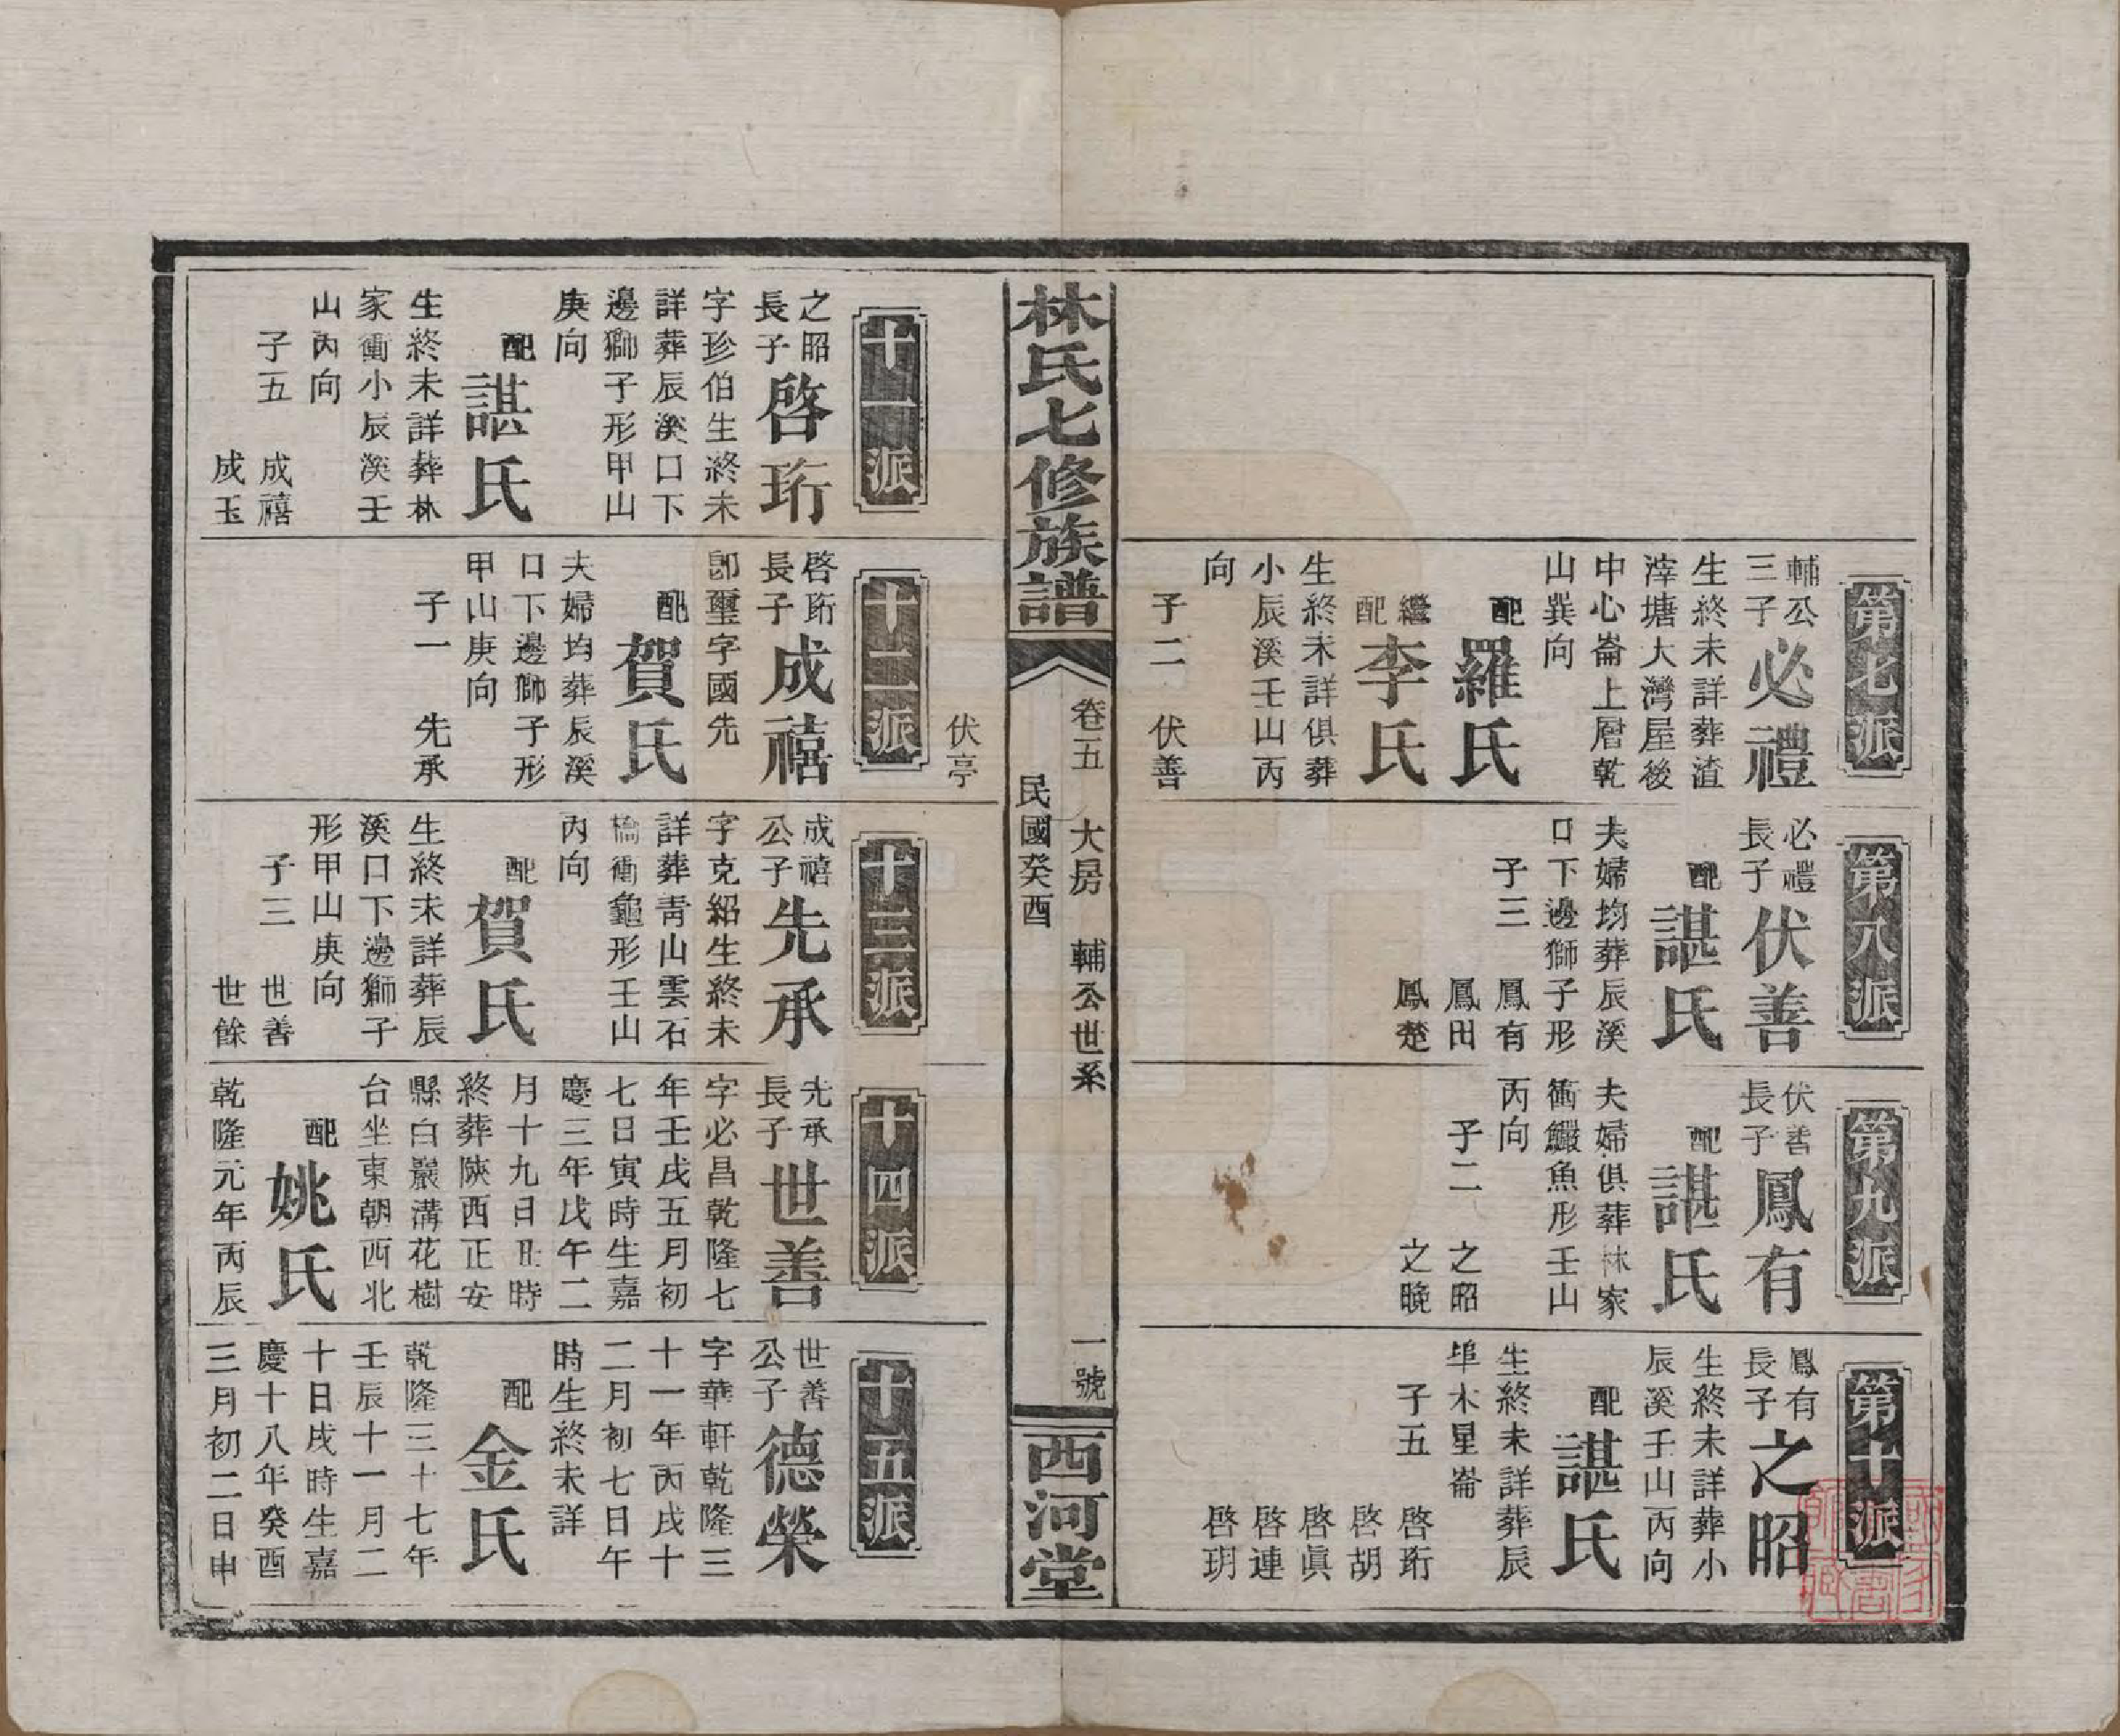 第七派
輔公
三子
必禮
生終未詳葬渣
滓塘大灣屋後
中心崙上層乾
山巽向
配
羅氏
繼
配
李氏
生終未詳俱葬
小辰溪壬山丙
向
子二　伏善
伏亭
第八派
必禮
長子
伏善
配
諶氏
夫婦均葬辰溪
口下邊獅子形
子三　鳳有
鳳田
鳳楚
第九派
伏善
長子
鳳有
配
諶氏
夫婦俱葬林家
衝鱺魚形壬山
丙向
子二　之昭
之晚
第十派
鳳有
長子
之昭
生終未詳葬小
辰溪壬山丙向
配
諶氏
生終未詳葬辰
埠木星崙
子五　啓珩
啓胡
啓眞
啓連
啓玥
林氏七修族譜
卷五　大房　輔公世系　一號
民國癸酉
西河堂
十一派
之昭
長子
啓珩
字珍伯生終未
詳葬辰溪口下
邊獅子形甲山
庚向
配
諶氏
生終未詳葬林
家衝小辰溪壬
山丙向
子五　成禧
成玉
十二派
啓珩
長子
成禧
卽璽字國先
配
賀氏
夫婦均葬辰溪
口下邊獅子形
甲山庚向
子一　先承
十三派
成禧
公子
先承
字克紹生終未
詳葬靑山雲石
衝龜形壬山
丙向
配
賀氏
生終未詳葬辰
溪口下邊獅子
形甲山庚向
子三　世善
世餘
十四派
先承
長子
世善
字必昌乾隆七
年壬戌五月初
七日寅時生嘉
慶三年戊午二
月十九日丑時
終葬陝西正安
縣白巖溝花樹
台坐東朝西北
配
姚氏
乾隆元年丙辰
十五派
世善
公子
德榮
字華軒乾隆三
十一年丙戌十
二月初七日午
時生終未詳
配
金氏
乾隆三十七年
壬辰十一月二
十日戌時生嘉
慶十八年癸酉
三月初二日申